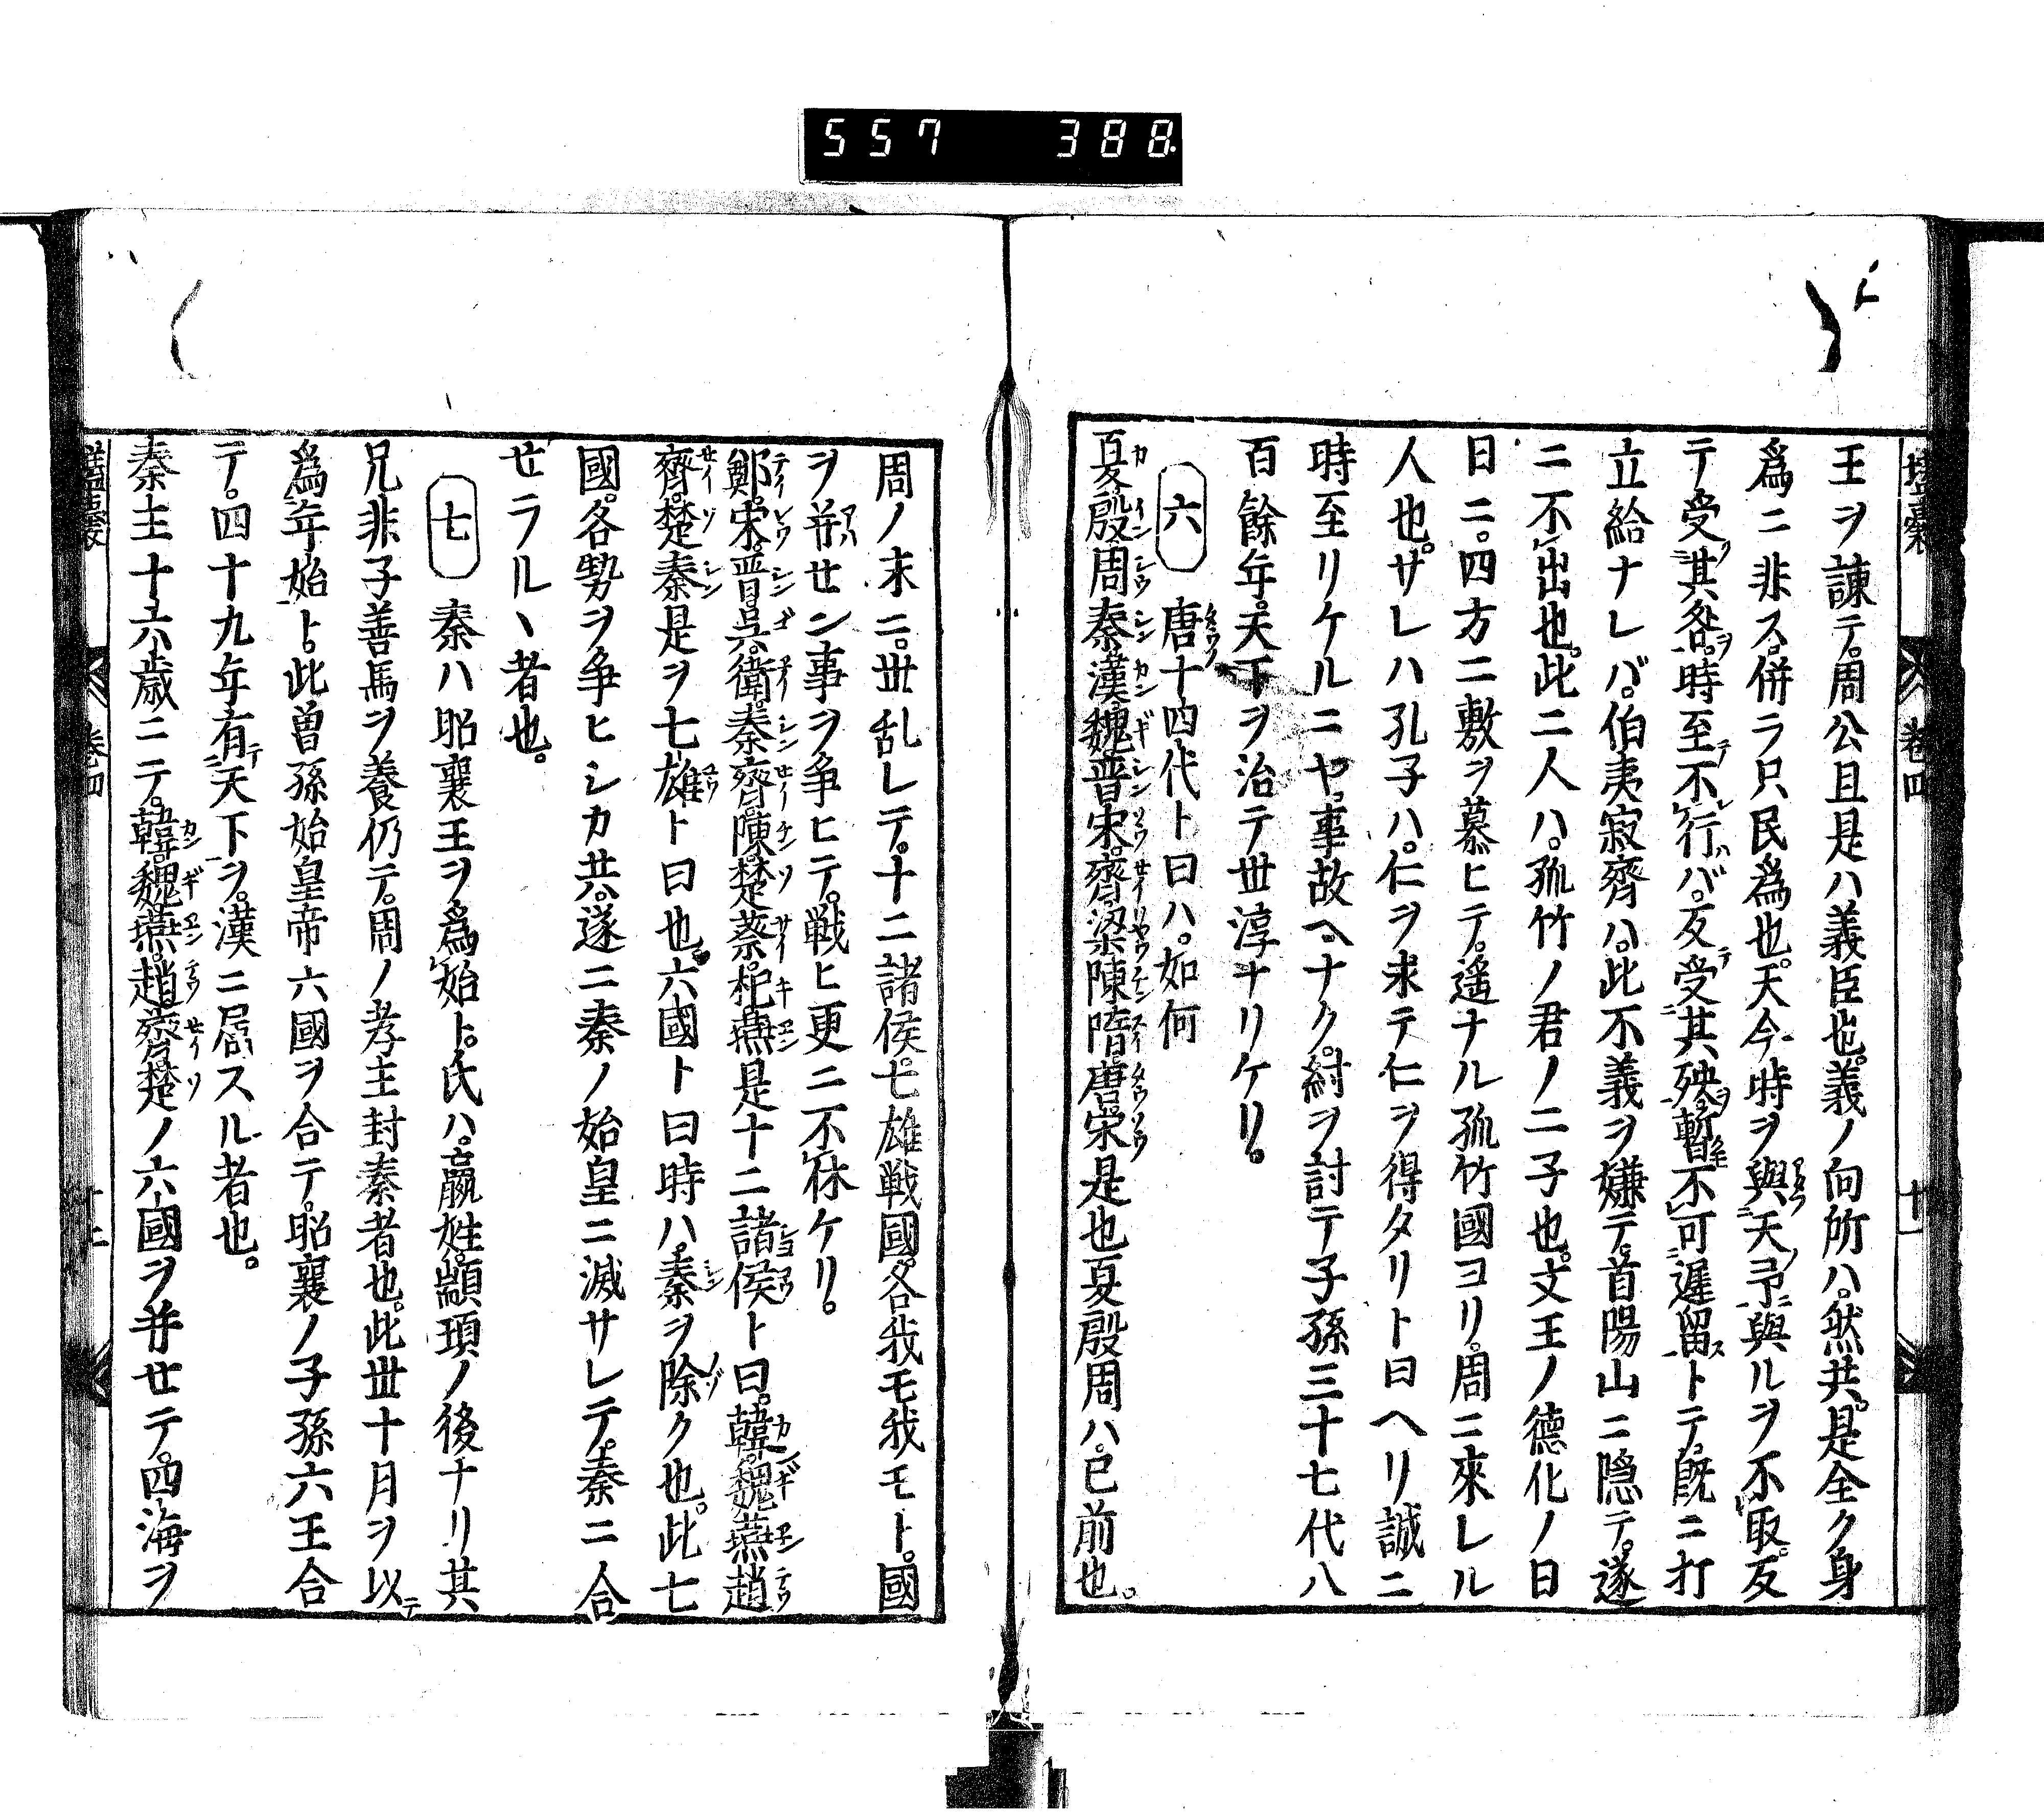 557 388
壒囊 卷四 十一
王ヲ諫テ。周公旦是ハ義臣也。義ノ向所ハ。然共。是全ク身
爲ニ非ス。併ラ只民爲也。天今時ヲ與天ノ予與ルヲ不取。反
テ受其咎。時至不行バ。反受其殃。暫不可遲留トテ。既ニ打
立給ナレバ。伯夷寂齊ハ。此不義ヲ嫌テ。首陽山ニ隱テ。遂
ニ不出也。此二人ハ。孤竹ノ君ノ二子也。文王ノ德化ノ日
日ニ。四方ニ敷ヲ慕ヒテ。遥ナル孤竹國ヨリ。周ニ來レル
人也。サレハ孔子ハ。仁ヲ求テ仁ヲ得タリト曰ヘリ誠ニ
時至リケルニヤ。事故ヘ。ナク。紂ヲ討テ子孫三十七代八
百餘年。天下ヲ治テ世淳ナリケリ。
六 唐十四代ト曰ハ。如何
夏殷周秦漢魏晉宋。齊梁陳隋。唐宋是也夏殷周ハ。已前也。
周ノ末ニ。世乱レテ。十二諸侯。七雄戦國。各我モ我モト。國
ヲ并セン事ヲ争ヒテ。戦ヒ更ニ不休ケリ。
鄭。宋。晋。呉。衛。秦齊。陳。楚蔡。杞燕是十二諸侯ト曰。韓。魏。燕。趙
齊。楚秦是ヲ七雄ト曰也。六國ト曰時ハ。秦ヲ除ク也。此七
國。各勢ヲ争ヒシカ共。遂ニ秦ノ始皇ニ滅サレテ。秦ニ合
セラルヽ者也。
七 秦ハ昭襄王ヲ爲始ト。氏ハ。嬴姓。顓頊ノ後ナリ其
兄非子善馬ヲ養仍テ。周ノ孝主封秦者也。此世十月ヲ以テ
爲年始ト。此曽孫始皇帝六國ヲ合テ。昭襄ノ子孫六王合
テ。四十九年有天下ヲ。漢ニ居スル者也。
秦主十六歳ニテ。韓。魏。燕。趙。齊。楚ノ六國ヲ并セテ。四海ヲ